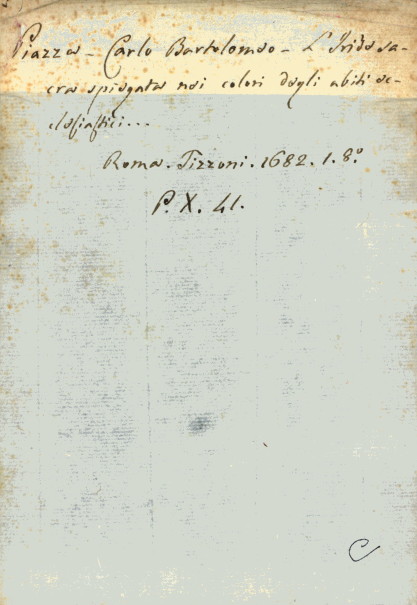 Piazza - Carlo Bartolomeo - L'Iride sa-
cra spiegata nei colori degli abiti ec-
clesiastici...
Roma. Tizzoni. 1682. 1. 8.º
P. X. 41.
C